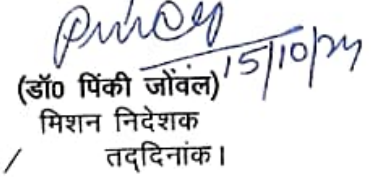 15/10/24
(डॉ0 पिंकी जोंवल)
मिशन निदेशक
/ तद्दिनांक।